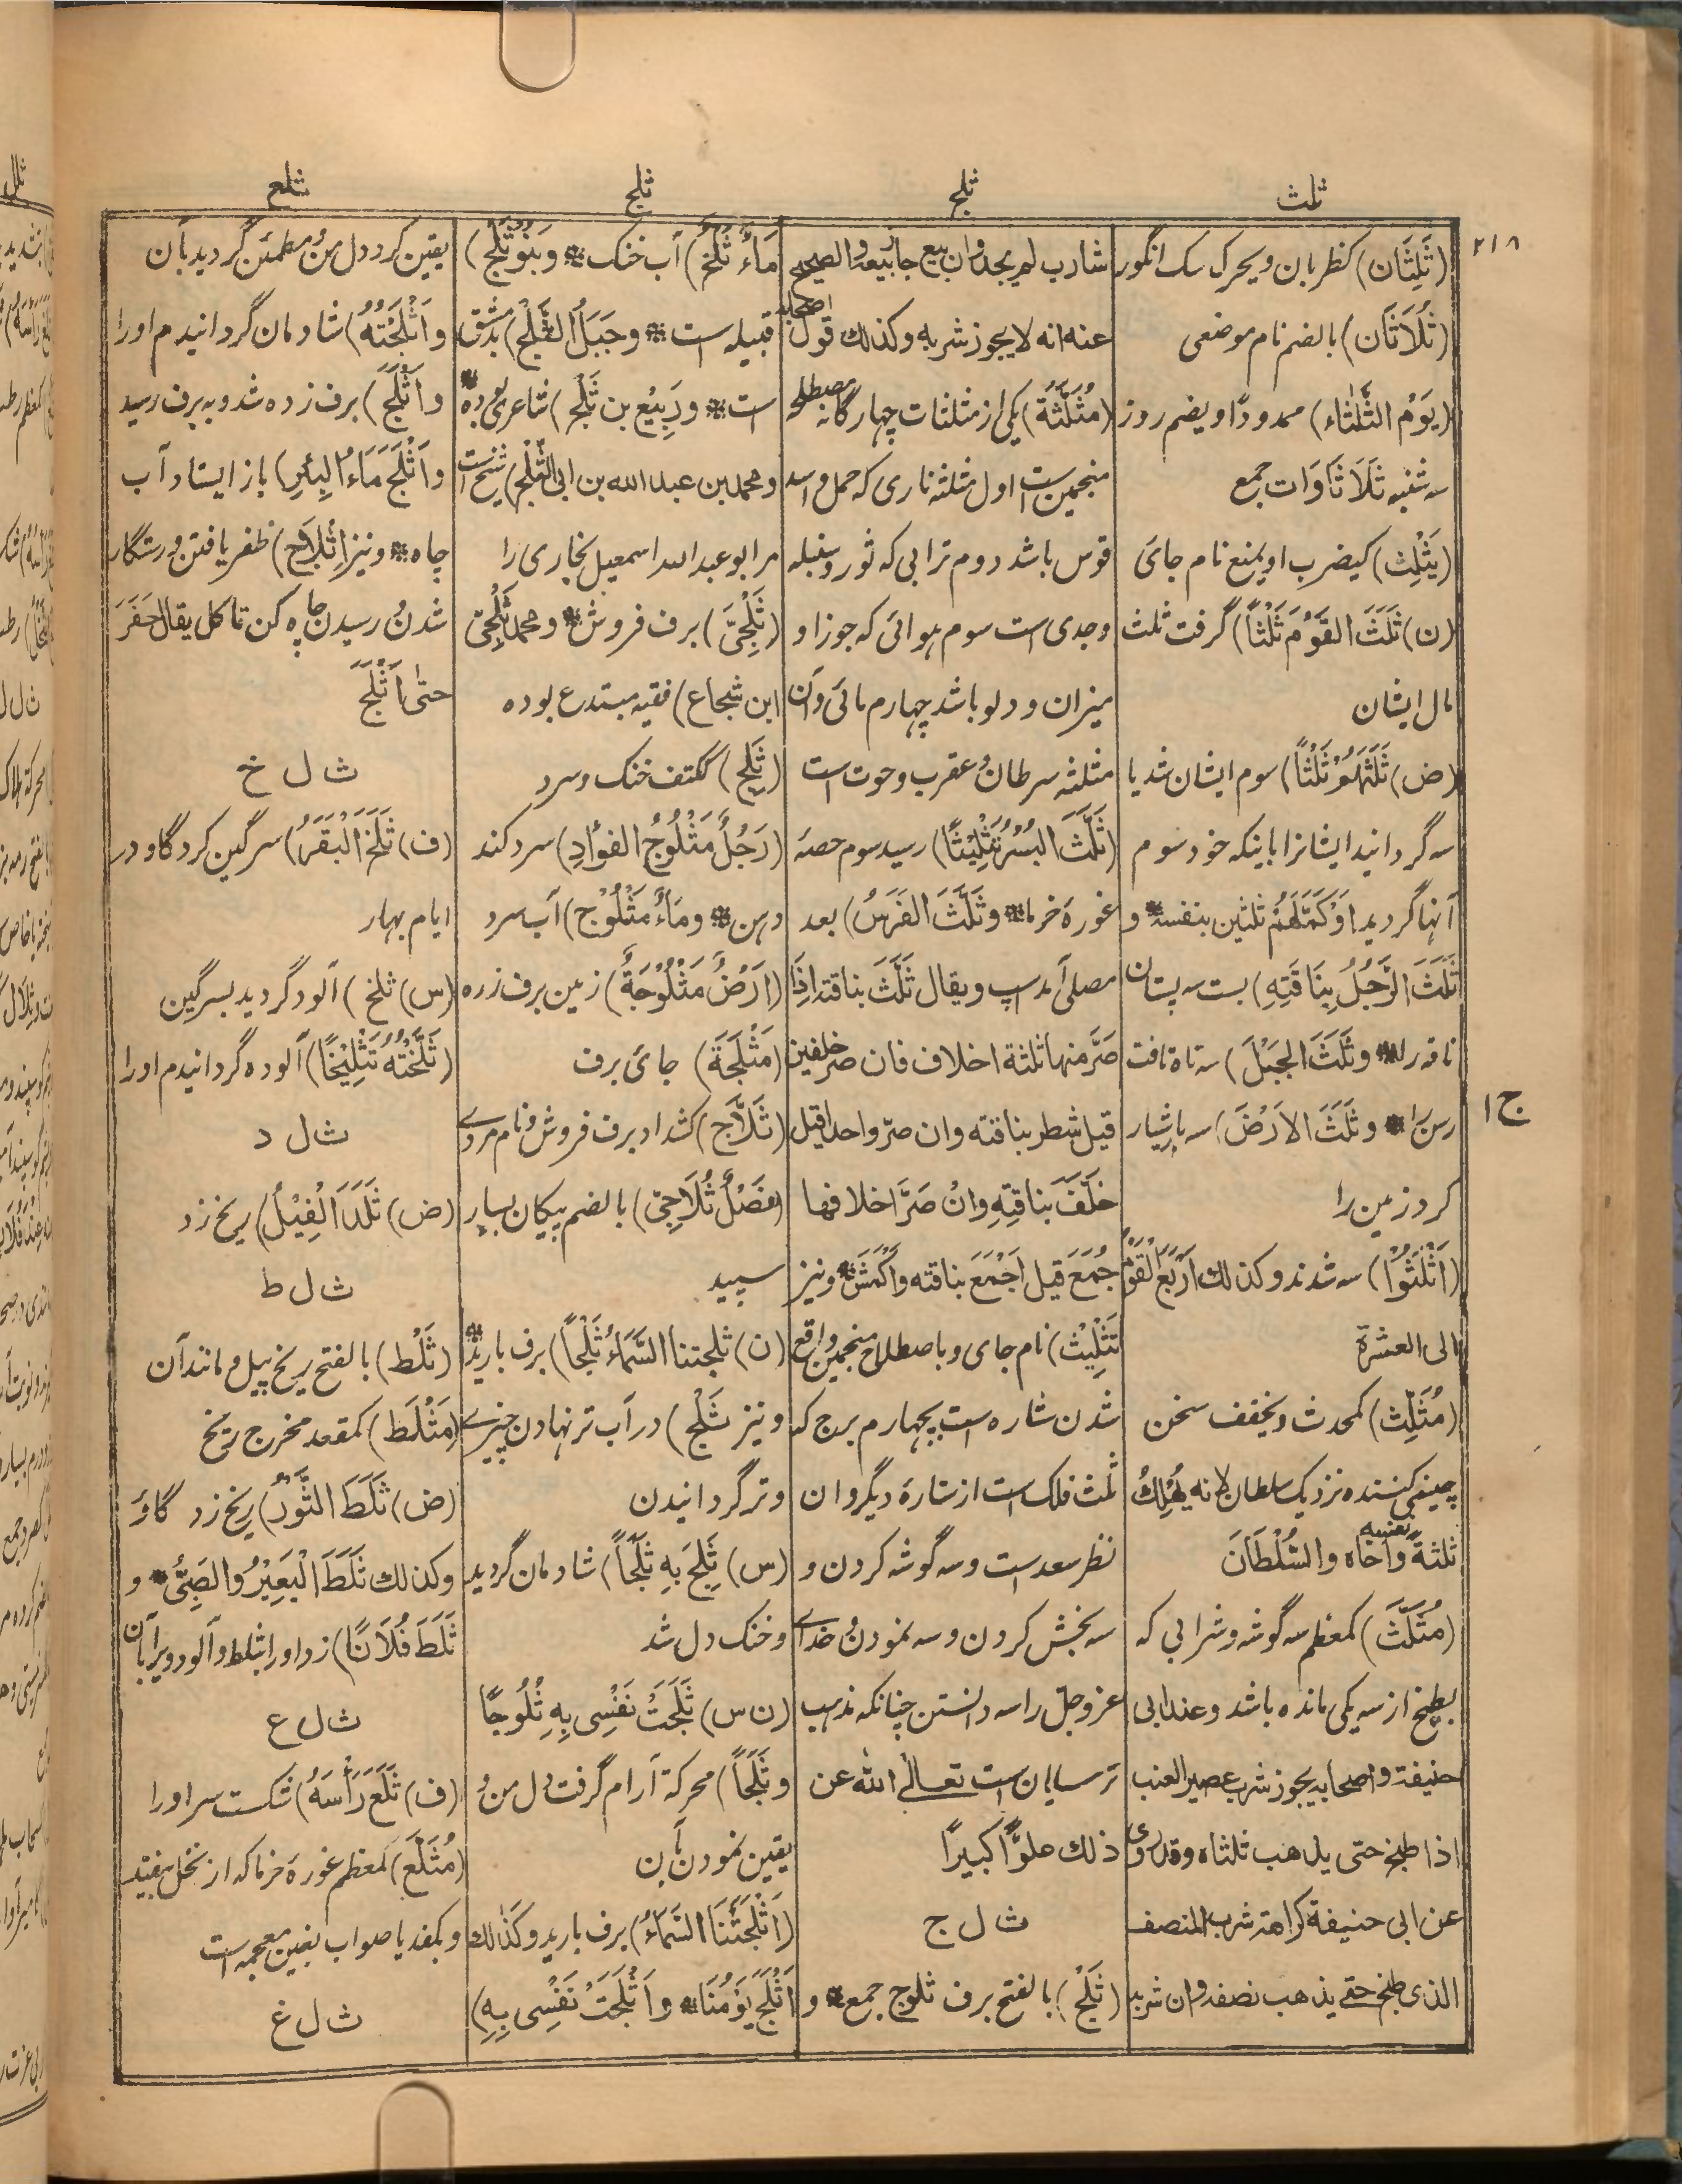 ثلث
ثلج
ثلج
ثلع
۲۱۸
(ثَلِثَان) کظربان ویحرک سک انگور
(ثُلَاثَان) بالضم نام موضعی
(یَوْمُ الثَّلٰثَاء) ممدودًا ویضم روز
سه شنبه ثَلَاثَاوَات جمع
(یَثْلِث) کیضرب او یمنع نام جای
(ن) ثَلَثَ القَوْمَ ثَلْثًا) گرفت ثلث
مال ایشان
(ض) ثَلَثَهُمْ ثَلْثًا) سوم ایشان شد یا
سه گردانید ایشانرا باینکه خود سوم
آنها گردید اَوْ کَمَّلَهُمْ ثلثین بنفسه و
ثَلَثَ الرَّجُلُ بِنَاقَتِهِ) بست سه پستان
ناقه را و ثَلَثَ الجَبَلَ) سه تاه تافت
رسن را و ثَلَثَ الاَرْضَ) سه بار شیار
کرد زمین را
(اَثْلَثُوْا) سه شدند و کذلك اَرْبَعَ القَوْمُ
الی العشرة
(مُثَلِّث) کمحدث و یخفف سخن
چینی کننده نزدیک سلطان لانه یُهْلِكُ
ثلثةً نفسه واخاه والسُّلْطَانَ
(مُثَلَّث) کمعظم سه گوشه و شرابی که
بطبخ از سه یکی مانده باشد و عند ابی
حنیفة واصحابه یجوز شرب عصیر العنب
اذا طبخ حتی یذهب ثلثاه وقد روی
عن ابی حنیفة کراهة شرب المنصف
الذی طبخ حتے یذهب نصفه وان شربه
شارب لم یحد وان بیع جاز بیعه والصحیح
عنه انه لا یجوز شربه وکذلك قول اصحابه
(مُثَلَّثَة) یکی از مثلثات چهارگانه مصطلح
منجمین ست اول مثلثه ناری که حمل و اسد
قوس باشد دوم ترابی که ثور و سنبله
وجدی است سوم هوائی که جوزا و
میزان و دلو باشد چهارم مائی و آن
مثلثه سرطان و عقرب و حوت است
(ثَلَّثَ البُسْرُ تَثْلِیْثًا) رسید سوم حصه
غوره خرما و ثَلَّثَ الفَرَسُ) بعد
مصلی آمد اسپ و یقال ثَلَّثَ بناقته اِذَا
صَرَّ منها ثلثة اخلاف فان صر خلفین
قیل شطر بناقته وان صرّ واحدا قیل
خَلَّفَ بناقتِهِ وانْ صَرَّ اخلافها
جُمَعَ قیل اَجْمَعَ بناقته واَکْمَشَ و نیز
تَثْلِیْث) نام جای و باصطلاح منجمین واقع
شدن ستاره ست بچهارم برج که
ثلث فلک است از ستاره دیگر و ان
نظر سعد است و سه گوشه کردن و
سه بخش کردن و سه نمودن و خدای
عز و جل را سه دانستن چنانکه مذهب
ترسایان ست تعالے الله عن
ذلك علوًّا کبیرًا
ث ل ج
(ثَلْج) بالفتح برف ثلوج جمع و
مَاءٌ ثَلْجٌ) آب خنک و بَنُوْ ثَلْج)
قبیله است و جَبَلُ الثَّلْج) بدمشق
است و رَبِیْع بن ثَلْج) شاعری بوده
و محمد بن عبد الله بن ابی الثَّلْج) شیخ است
مر ابو عبد الله اسمعیل بخاری را
(ثَلْجِیّ) برف فروش و محمد ثَلْجِیّ
ابن شجاع) فقیه مبتدع بوده
(ثَلِج) ککتف خنک و سرد
(رَجُلٌ مَثْلُوْجُ الفُؤَادِ) سرد کند
ذهن و مَاءٌ مَثْلُوْج) آب سرد
(اَرْضٌ مَثْلُوْجَةٌ) زمین برف زده
(مَثْلَجَة) جای برف
(ثَلَّاج) کشداد برف فروش و نام مردے
(نَصْلٌ ثُلَاجِیّ) بالضم پیکان بسیار
سپید
(ن) ثلجتنا السَّمَاءُ ثَلْجًا) برف بارید
و نیز ثَلْج) در آب تر نهادن چیزے
و تر گردانیدن
(س) ثَلِجَ بِهِ ثَلَجًا) شادمان گردید
و خنک دل شد
(ن س) ثَلَجَتْ نَفْسِی بِهِ ثُلُوجًا
و ثَلَجًا) محرکة آرام گرفت دل من و
یقین نمودن بآن
(اَثْلَجَتْنَا السَّمَاءُ) برف بارید و کَذٰلك
اَثْلَجَ یَوْمُنَا و اَثْلَجَتْ نَفْسِی بِهِ)
یقین کرد دل من و مطمئن گردید بآن
و اَثْلَجْتُهُ) شادمان گردانیدم او را
و اَثْلَجَ) برف زده شد و به برف رسید
و اَثْلَجَ مَاءُ البِئْرِ) باز ایستاد آب
چاه و نیز اِثْلَاج) ظفر یافتن و رستگار
شدن و رسیدن چاه کن تا کل یقال حَفَرَ
حتٰی اَثْلَجَ
ث ل خ
(ف) ثَلَخَ الْبَقَرُ) سرگین کرد گاو در
ایام بهار
(س) ثلخ) آلود گردید بسرگین
(ثَلَّخْتُهُ تَثْلِیْخًا) آلوده گردانیدم او را
ث ل د
(ض) ثَلَدَ الْفِیْلُ) ریخ زد
ث ل ط
(ثَلْط) بالفتح ریخ پیل و مانند آن
(مَثْلَط) کمقعد مخرج ریخ
(ض) ثَلَطَ الثَّوْرُ) ریخ زد گاؤ
و کذلك ثَلَطَ الْبَعِیْرُ والصَّبِیُّ و
ثَلَطَ فُلَانًا) زد او را بثلط و آلود ویرا بآن
ث ل ع
(ف) ثَلَعَ رَأْسَهُ) شکست سر او را
(مُثَلَّع) کمعظم غوره خرما که از نخل بیفتد
و بکفد یا صواب بغین معجمه است
ث ل غ
ج ۱